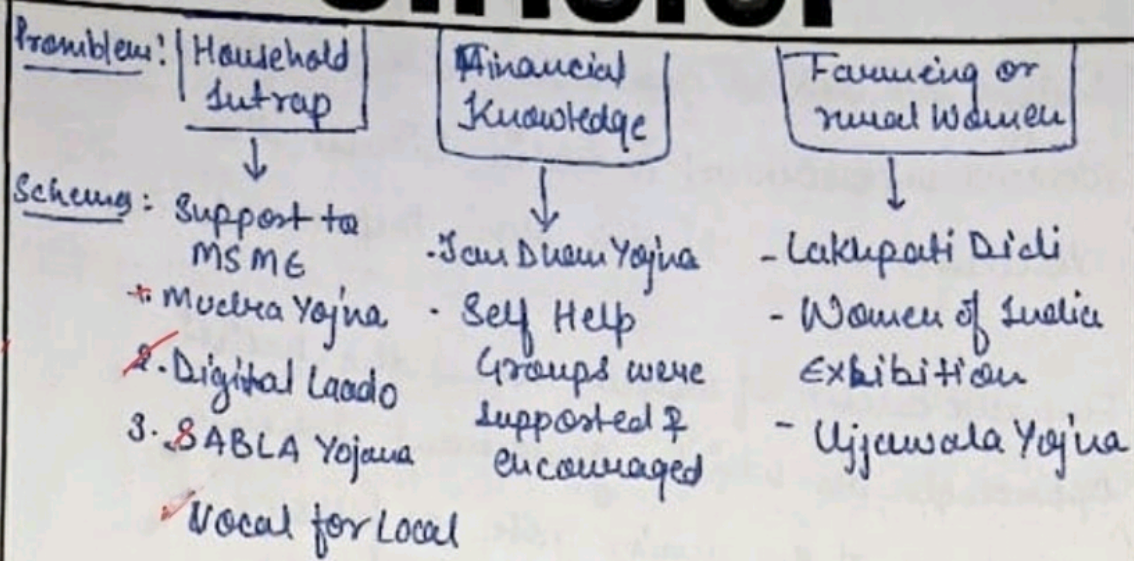 Promiblem:
Household
Intrap
Schems:
Support to
MSME
Mudra Yojna
2. Digital Laado
3. SABLA Yojana
Vocal for Local
Financial
Knowledge
- Jan Dhan Yojna
· Self Help
Groups were
supported &
encouraged
Farming or
rural Women
- Lakhpati Didi
- Women of India
Exhibition
- Ujjawala Yojna